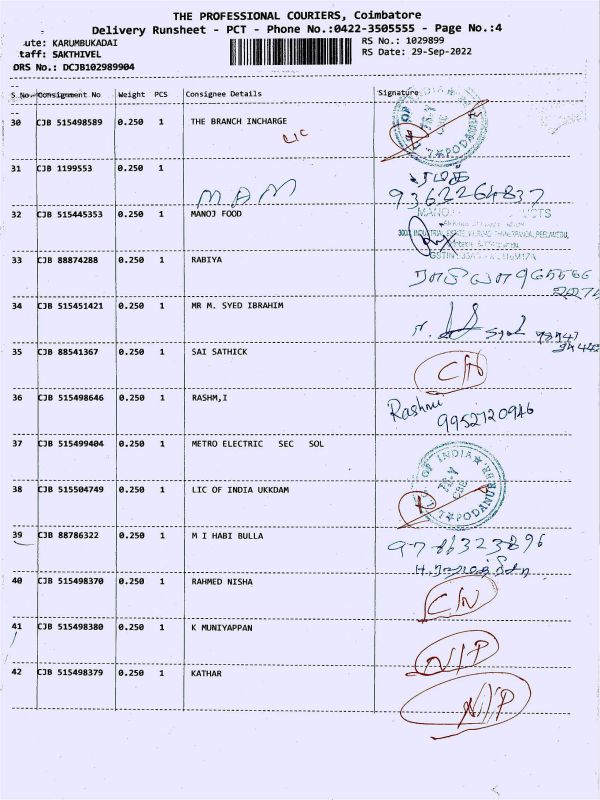 THE PROFESSIONAL COURIERS, Coimbatore
Delivery Runsheet - PCT - Phone No.:0422-3505555 - Page No.:4
ute: KARUMBUKADAI RS No.: 1029899
taff: SAKTHIVEL RS Date: 29-Sep-2022
DRS No.: DCJB102989904
S No Consignment No Weight PCS Consignee Details Signature
30 CJB 515498589 0.250 1 THE BRANCH INCHARGE
LIC
31 CJB 1199553 0.250 1
9362264837
32 CJB 515445353 0.250 1 MANOJ FOOD
33 CJB 88874288 0.250 1 RABIYA
34 CJB 515451421 0.250 1 MR M. SYED IBRAHIM
35 CJB 88541367 0.250 1 SAI SATHICK C/N
36 CJB 515498646 0.250 1 RASHM,I Rashmi
9952120946
37 CJB 515499404 0.250 1 METRO ELECTRIC SEC SOL
38 CJB 515504749 0.250 1 LIC OF INDIA UKKDAM
39 CJB 88786322 0.250 1 M I HABI BULLA
40 CJB 515498370 0.250 1 RAHMED NISHA C/N
41 CJB 515498380 0.250 1 K MUNIYAPPAN N/P
42 CJB 515498379 0.250 1 KATHAR N/P